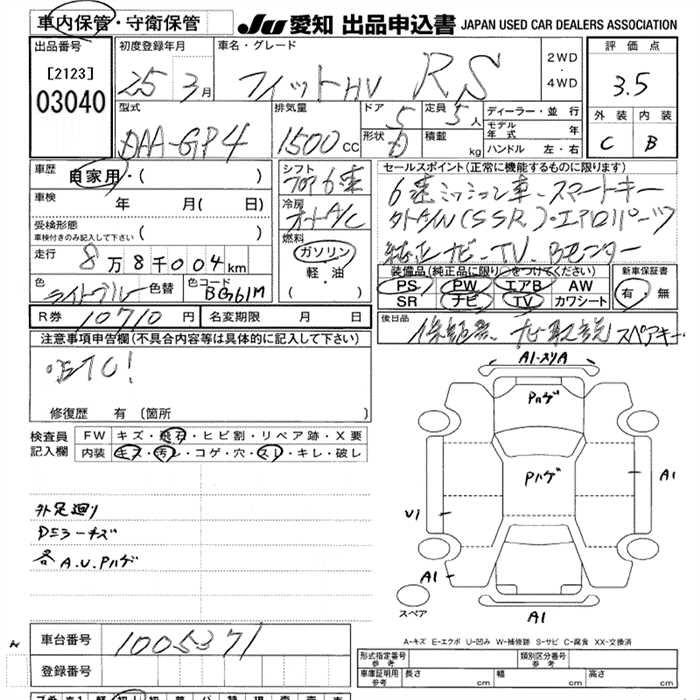 車内保管・守衛保管
JU 愛知 出品申込書 JAPAN USED CAR DEALERS ASSOCIATION
出品番号 初度登録年月 車名・グレード 2WD・4WD 評価点
[2123]
03040 25 3月 フィットHV RS 3.5
型式 排気量 ドア 5 定員 5人 ディーラー・並行 外装 内装
DAA-GP4 1500cc 形状 積載 kg モデル年式 年 ハンドル 左・右 C B
車歴 自家用・( ) シフト フロア6速 セールスポイント(正常に機能するものに限ります)
車検 年 月( 日) 冷房 オートA/C 6速ミッション車、スマートキー
受検形態 車検付きのみ記入して下さい ( ) 燃料 ガソリン・軽・油( ) 外アルミ(SSR)・エアロパーツ
走行 8万8千004km 純正ナビ・TV、Bモニター
色 ライトブルー 色替 色コード BG61M
装備品(純正品に限り○をつけてください) 新車保証書
PS PW エアB AW 有・無
SR ナビ TV カワシート
R券 10710円 名変期限 月 日 後日品 保、記録、ナビ取説 スペアキー
注意事項申告欄(不具合内容等は具体的に記入して下さい)
・ETC!
修復歴 有 (箇所
検査員記入欄 FW キズ・飛石・ヒビ割・リペア跡・X要
内装 キズ・汚レ・コゲ・穴・スレ・キレ・破レ
A1-スリA
Pハゲ
Pハゲ
A1
U1
A1
スペア
A1
外足廻り
各A.U.Pハゲ
車台番号 1005371
登録番号
A-キズ E-エクボ U-凹み W-補修跡 S-サビ C-腐食 XX-交換済
形式指定番号 参考 類別区分番号 参考
車庫証明用 参考 長さ cm 幅 cm 高さ cm